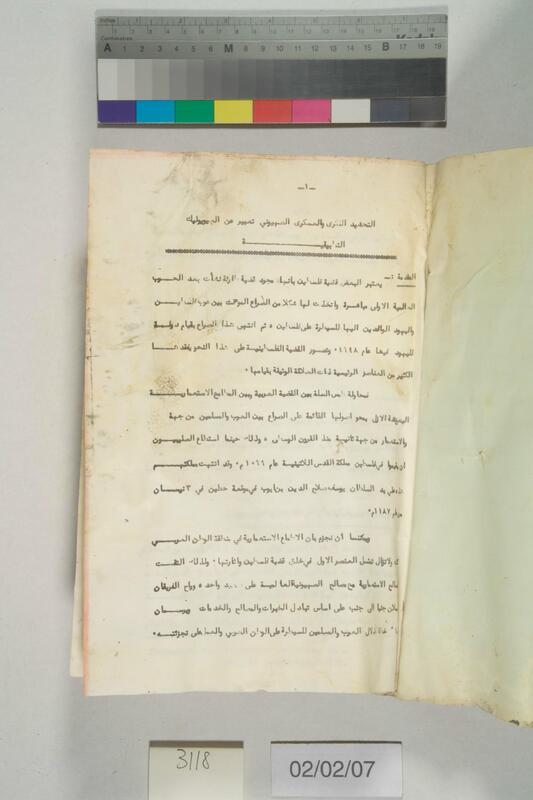 Inches 1 2 3 4 5 6 7
Centimetres
A 1 2 3 4 5 6 M 8 9 10 11 12 13 14 15 B 17 18 19
Kodak
-١-
والعسكرى الصهيوني تعبير عن
المقدمة :- يعتبر البعض قضية فلسطين بانها مجرد قضية نشأت بعد الحرب
العالمية الاولى مباشرة واتخذت لها شكلا من الصراع المؤقت بين عرب فلسطين
واليهود الوافدين اليها للسيطرة على فلسطين ، ثم انتهى هذا الصراع بقيام دولة
لليهود فيها عام ١٩٤٨ ، وتصور القضية الفلسطينية على هذا النحو يفقدها
الكثير من العناصر الرئيسية ذات العلاقة الوثيقة بقيامها .
الصلة بين القضية العربية وبين المطامع الاستعمارية
القائمة على الصراع بين العرب والمسلمين من جهة
والاستعمار من جهة ثانية منذ القرون الوسطى ، وذلك حينما استطاع الصليبيون
ان يقيموا في فلسطين مملكة القدس اللاتينية عام ١٠٩٩ م . وقد انتهت مملكتهم
على يد السلطان يوسف صلاح الدين بن ايوب في موقعة حطين في ٣
١١٨٧م .
ويمكننا ان نجزم بان الاطماع الاستعمارية في منطقة الوطن العربي
ولاتزال تمثل العنصر الاول في خلق قضية فلسطين واثارتها . ولذلك التقت
الاستعمارية مع مصالح الصهيونية العالمية على واحد ، وراح الفريقان
جنبا الى جنب على اساس تبادل الخبرات والمصالح والخدمات
العرب والمسلمين للسيطرة على الوطن العربي والعمل على تجزئته .
3118
02/02/07